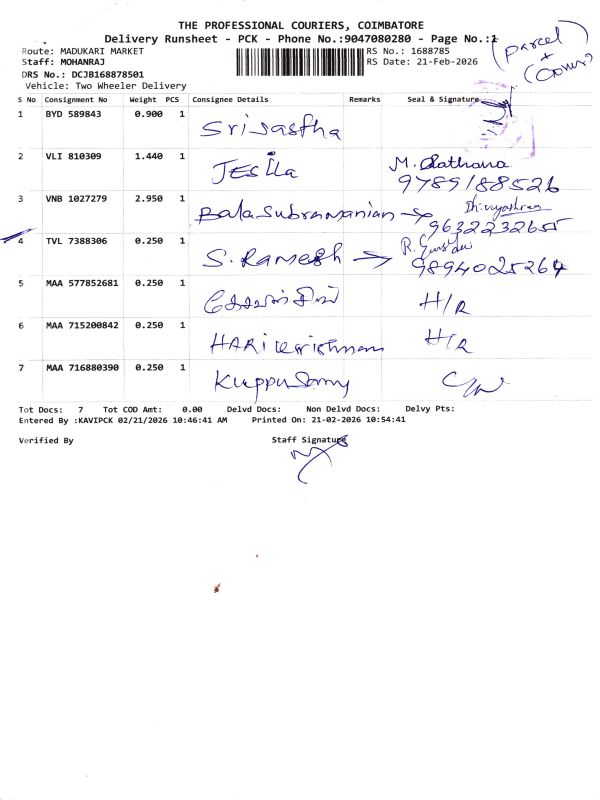 THE PROFESSIONAL COURIERS, COIMBATORE
Delivery Runsheet - PCK - Phone No.:9047080280 - Page No.:1
(Parcel)
+
Route: MADUKARI MARKET RS No.: 1688785
Staff: MOHANRAJ RS Date: 21-Feb-2026
DRS No.: DCJB168878501
Vehicle: Two Wheeler Delivery
S No Consignment No Weight PCS Consignee Details Remarks Seal & Signature
1 BYD 589843 0.900 1 Srisastha
2 VLI 810309 1.440 1 JESIla M. Rathana
9789188526
3 VNB 1027279 2.950 1 Bala Subramanian →
9632232655
4 TVL 7388306 0.250 1 S. Ramesh →
9894025264
5 MAA 577852681 0.250 1 H/R
6 MAA 715200842 0.250 1 HARikrishnan H/R
7 MAA 716880390 0.250 1 Kuppusamy
Tot Docs: 7 Tot COD Amt: 0.00 Delvd Docs: Non Delvd Docs: Delvy Pts:
Entered By :KAVIPCK 02/21/2026 10:46:41 AM Printed On: 21-02-2026 10:54:41
Verified By Staff Signature